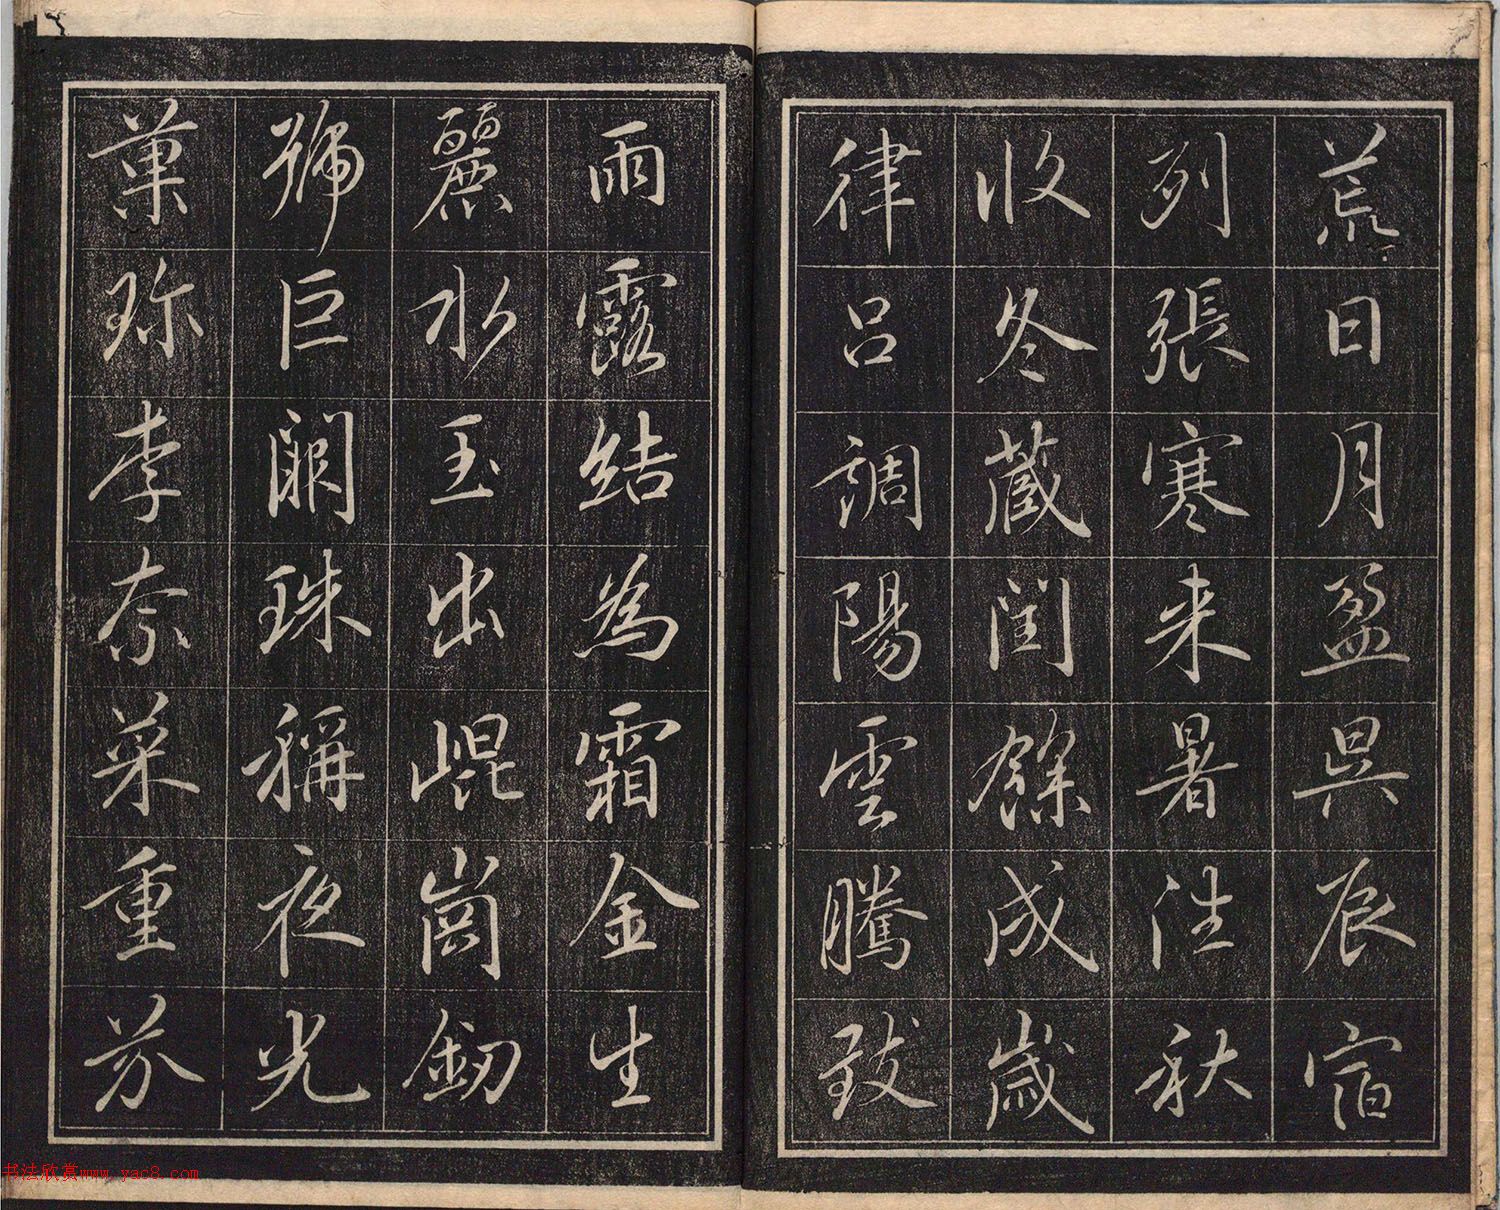 荒日月盈昃辰宿
列張寒来暑往秋
收冬藏閏餘成歲
律呂調陽雲騰致
雨露結為霜金生
麗水玉出崐崗劒
號巨闕珠稱夜光
菓珎李柰菜重芥
书法欣赏www.yac8.com